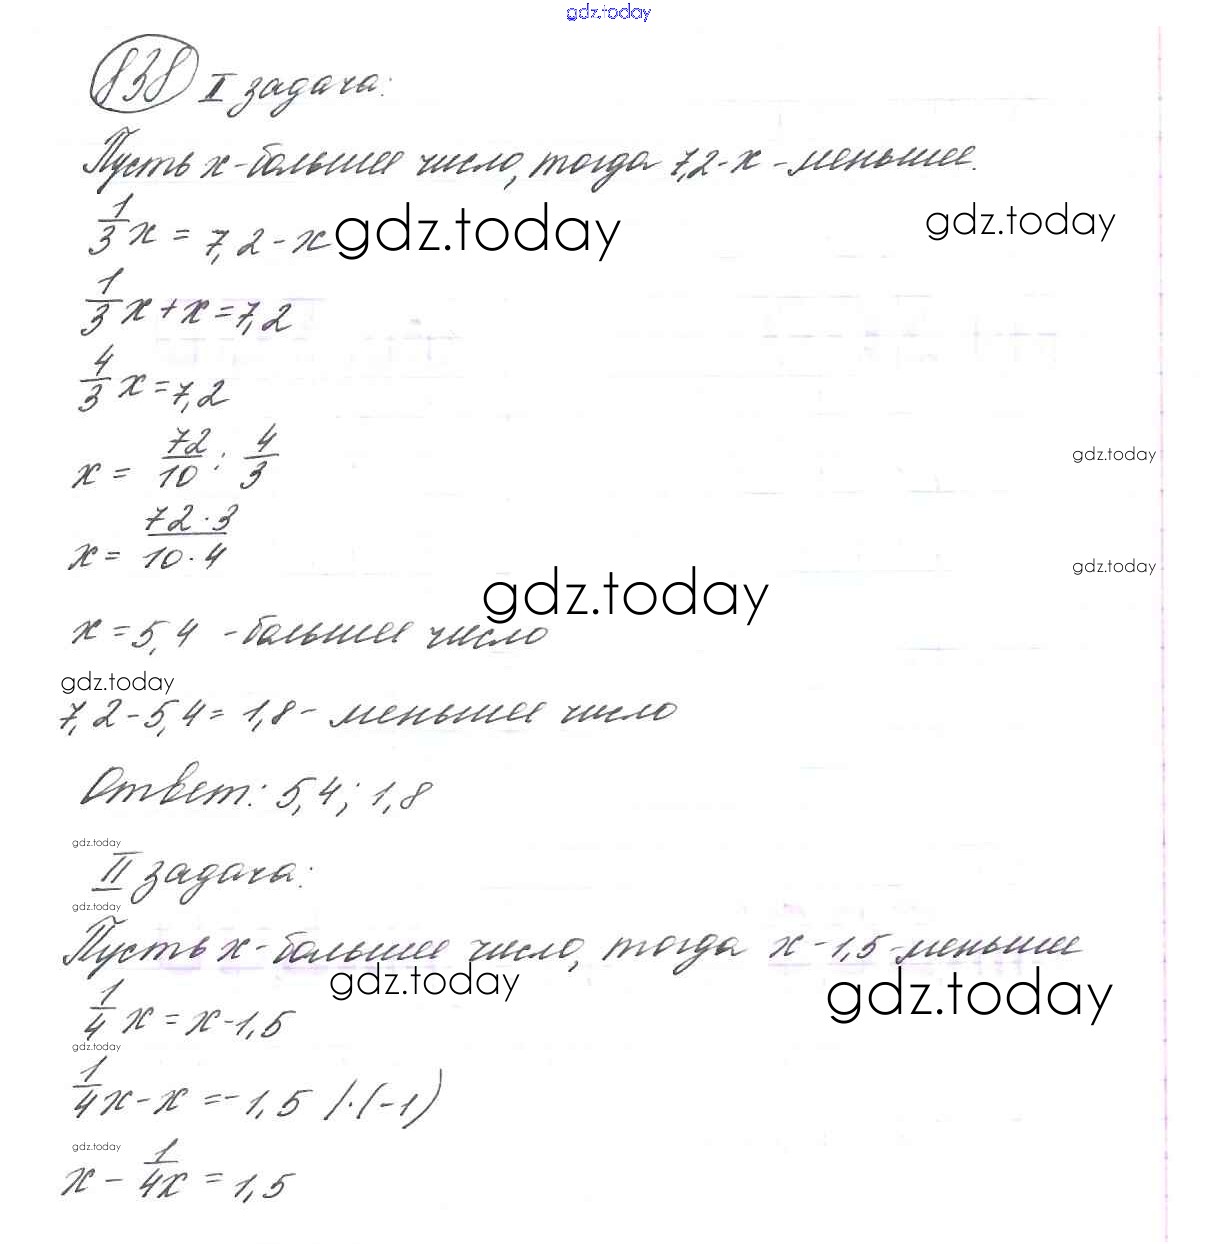 gdz.today
838 I задача:
Пусть x - большее число, тогда 7,2 - x - меньшее.
1/3 x = 7,2 - x
gdz.today
gdz.today
1/3 x + x = 7,2
4/3 x = 7,2
x = 72/10 : 4/3
gdz.today
x = 72 · 3 / 10 · 4
gdz.today
gdz.today
x = 5,4 - большее число
gdz.today
7,2 - 5,4 = 1,8 - меньшее число
Ответ: 5,4; 1,8
gdz.today
II задача:
gdz.today
Пусть x - большее число, тогда x - 1,5 - меньшее
gdz.today
gdz.today
1/4 x = x - 1,5
gdz.today
1/4 x - x = - 1,5 / · (-1)
gdz.today
x - 1/4x = 1,5